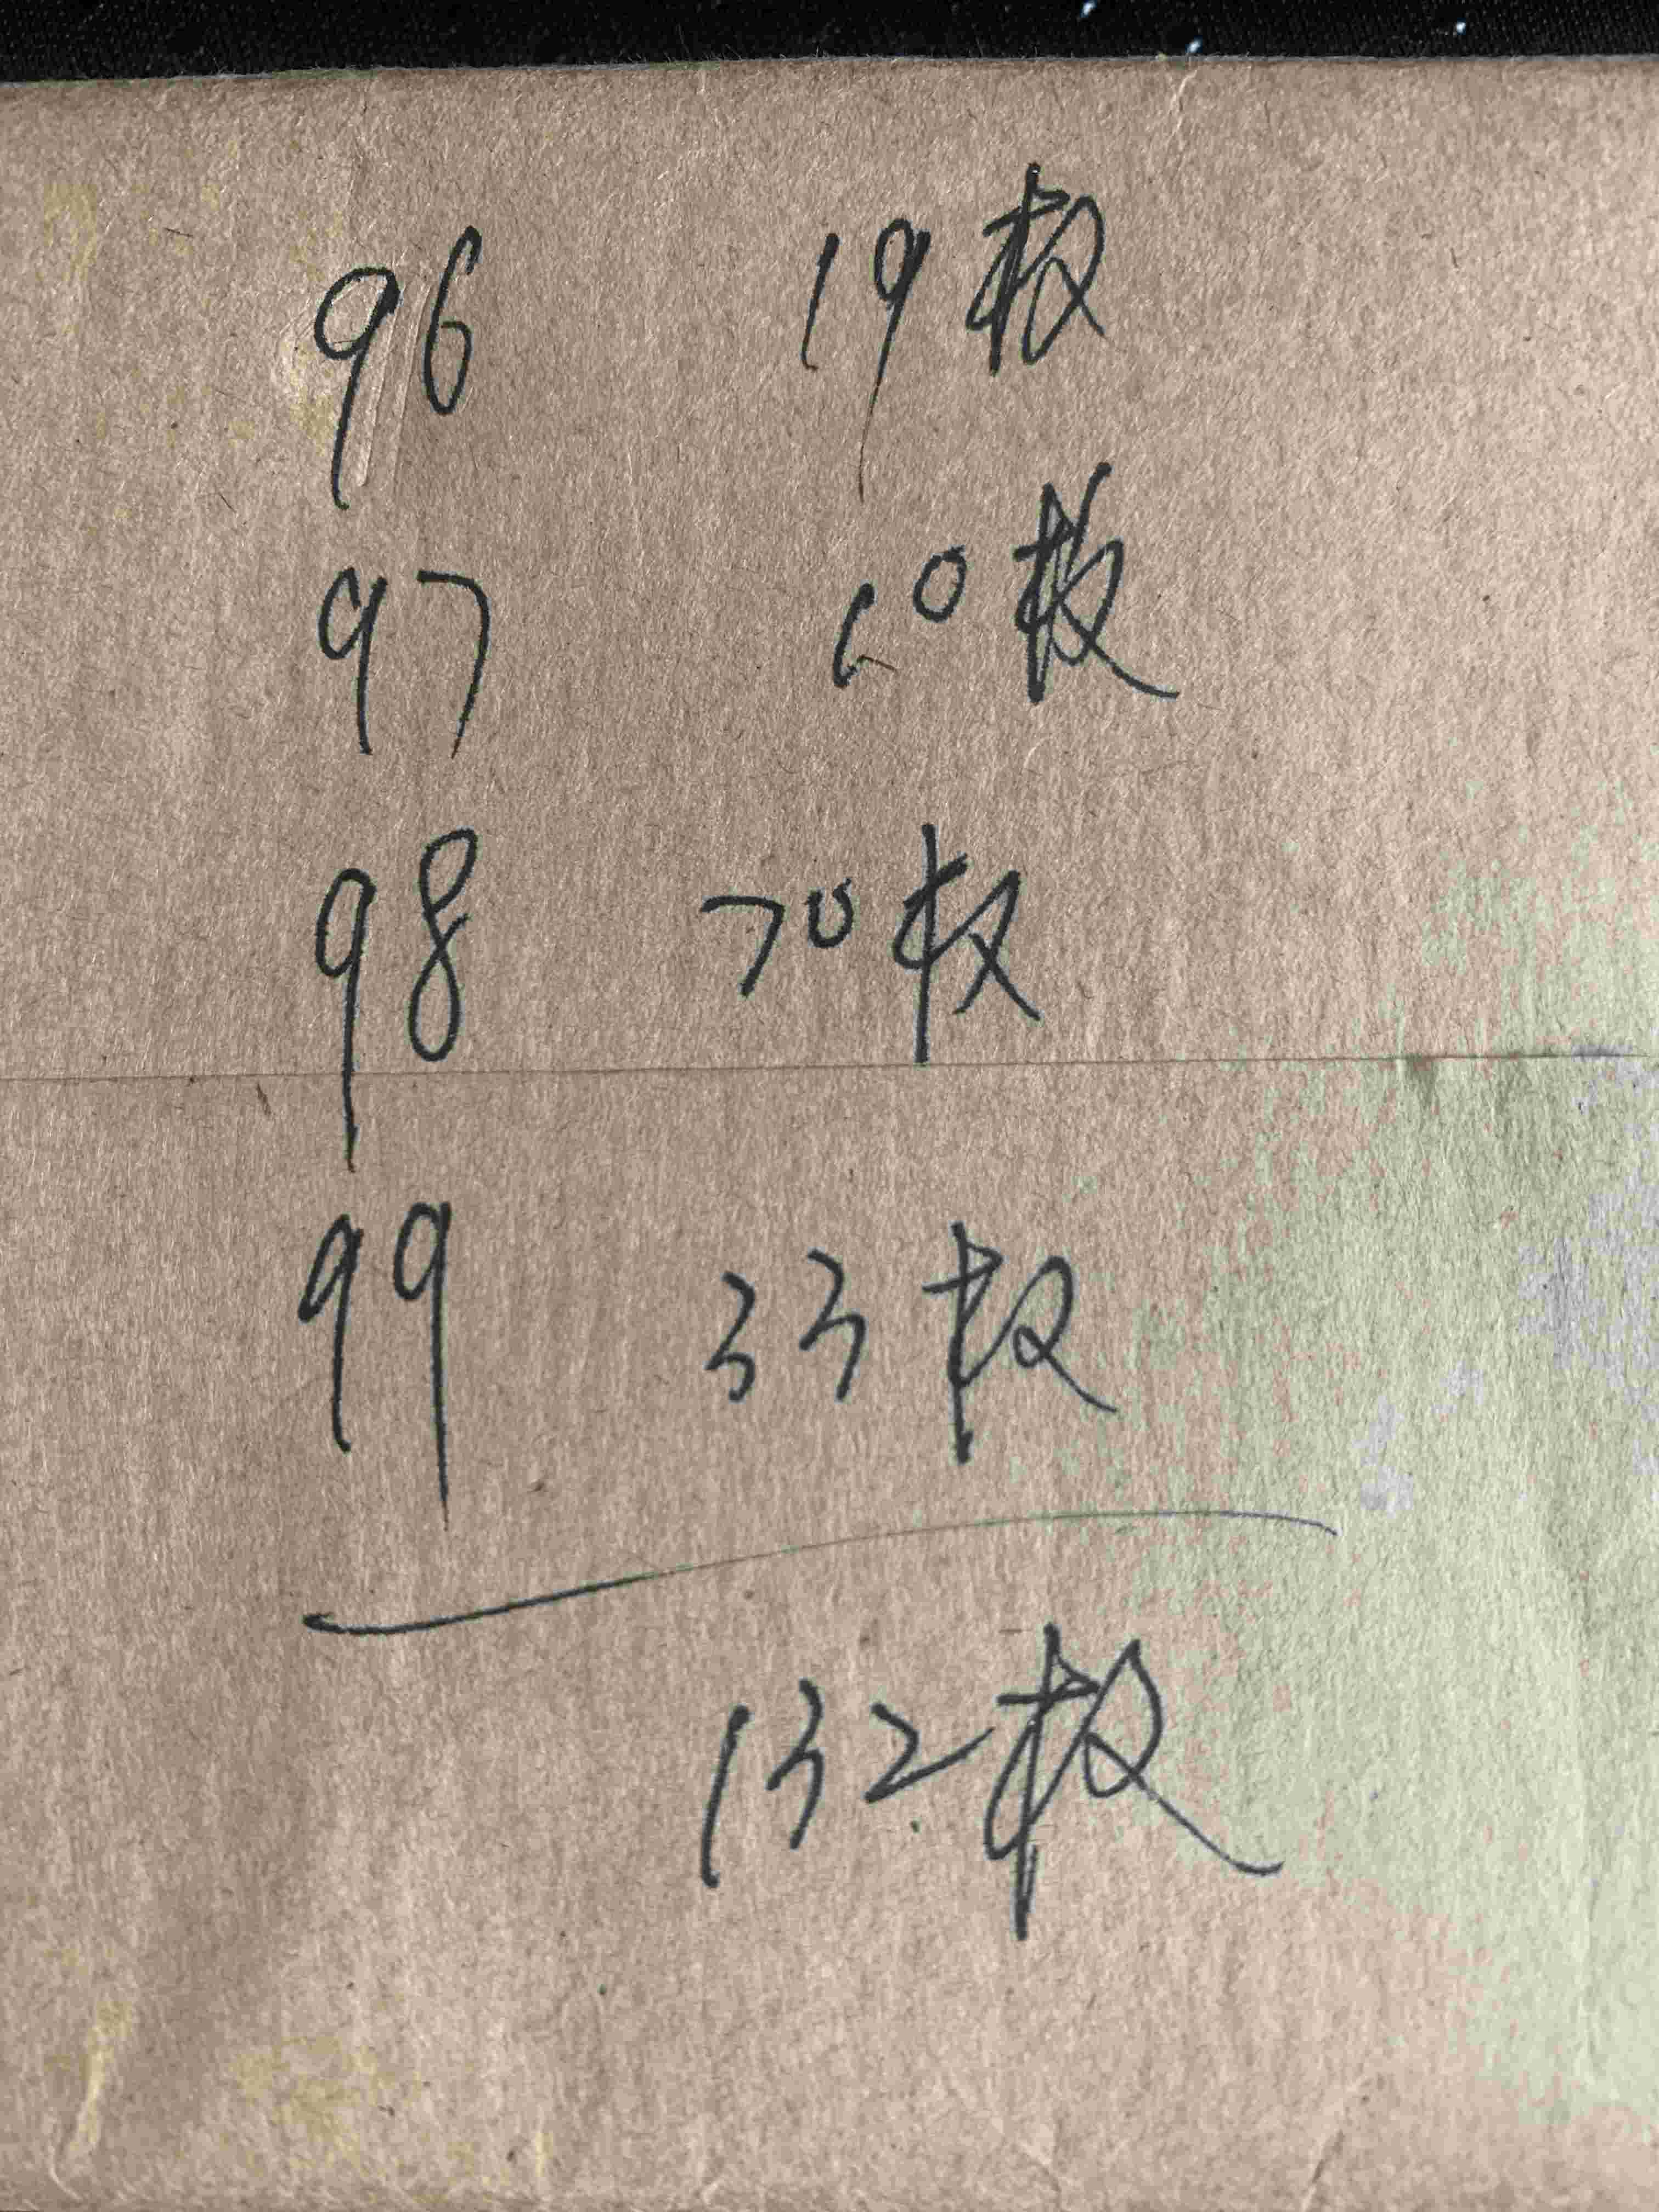 96 19枚
97 10枚
98 70枚
99 33枚
132枚